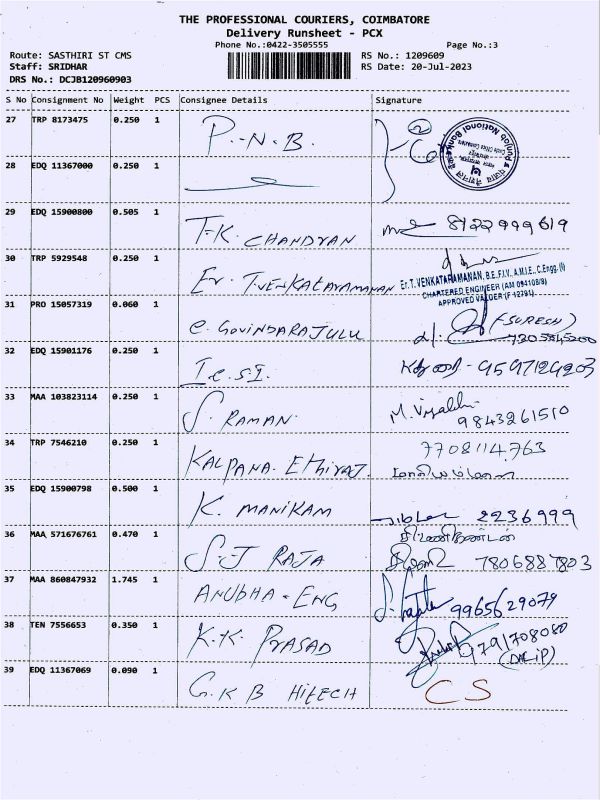 THE PROFESSIONAL COURIERS, COIMBATORE
Delivery Runsheet - PCX
Phone No.:0422-3505555 Page No.:3
Route: SASTHIRI ST CMS RS No.: 1209609
Staff: SRIDHAR RS Date: 20-Jul-2023
DRS No.: DCJB120960903
S No Consignment No Weight PCS Consignee Details Signature
27 TRP 8173475 0.250 1 P.N.B. 2
28 EDQ 11367000 0.250 1
29 EDQ 15900800 0.505 1 T.K. CHANDRAN 8122999619
30 TRP 5929548 0.250 1 Er. T. VENKATARAMANAN
Er. T. VENKATARAMANAN, B.E.,F.I.V., A.M.I.E., C.Engg. (I)
CHARTERED ENGINEER (AM 094108/9)
APPROVED VALUER (F 12791)
31 PRO 15057319 0.060 1 C. GOVINDARAJULU (SURESH)
32 EDQ 15901176 0.250 1 I.C.S.I. 9597129203
33 MAA 103823114 0.250 1 S. RAMAN 9843261510
34 TRP 7546210 0.250 1 KALPANA. Ethiraj. 7708114763
35 EDQ 15900798 0.500 1 K. MANIKAM 2236999
36 MAA 571676761 0.470 1 S.J RAJA 7806887803
37 MAA 860847932 1.745 1 ANUBHA - ENG 9965629079
38 TEN 7556653 0.350 1 K.K. PRASAD
39 EDQ 11367069 0.090 1 G.K B HITECH CS